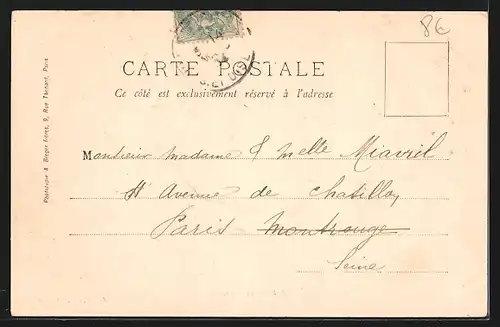 86
CARTE POSTALE
Ce côté est exclusivement réservé à l'adresse
Phototypie A. Bergeret Frères, 9, Rue Thénard, Paris
Monsieur Madame & Melle Miavril
Avenue de Chatillon
Paris Montrouge
Seine